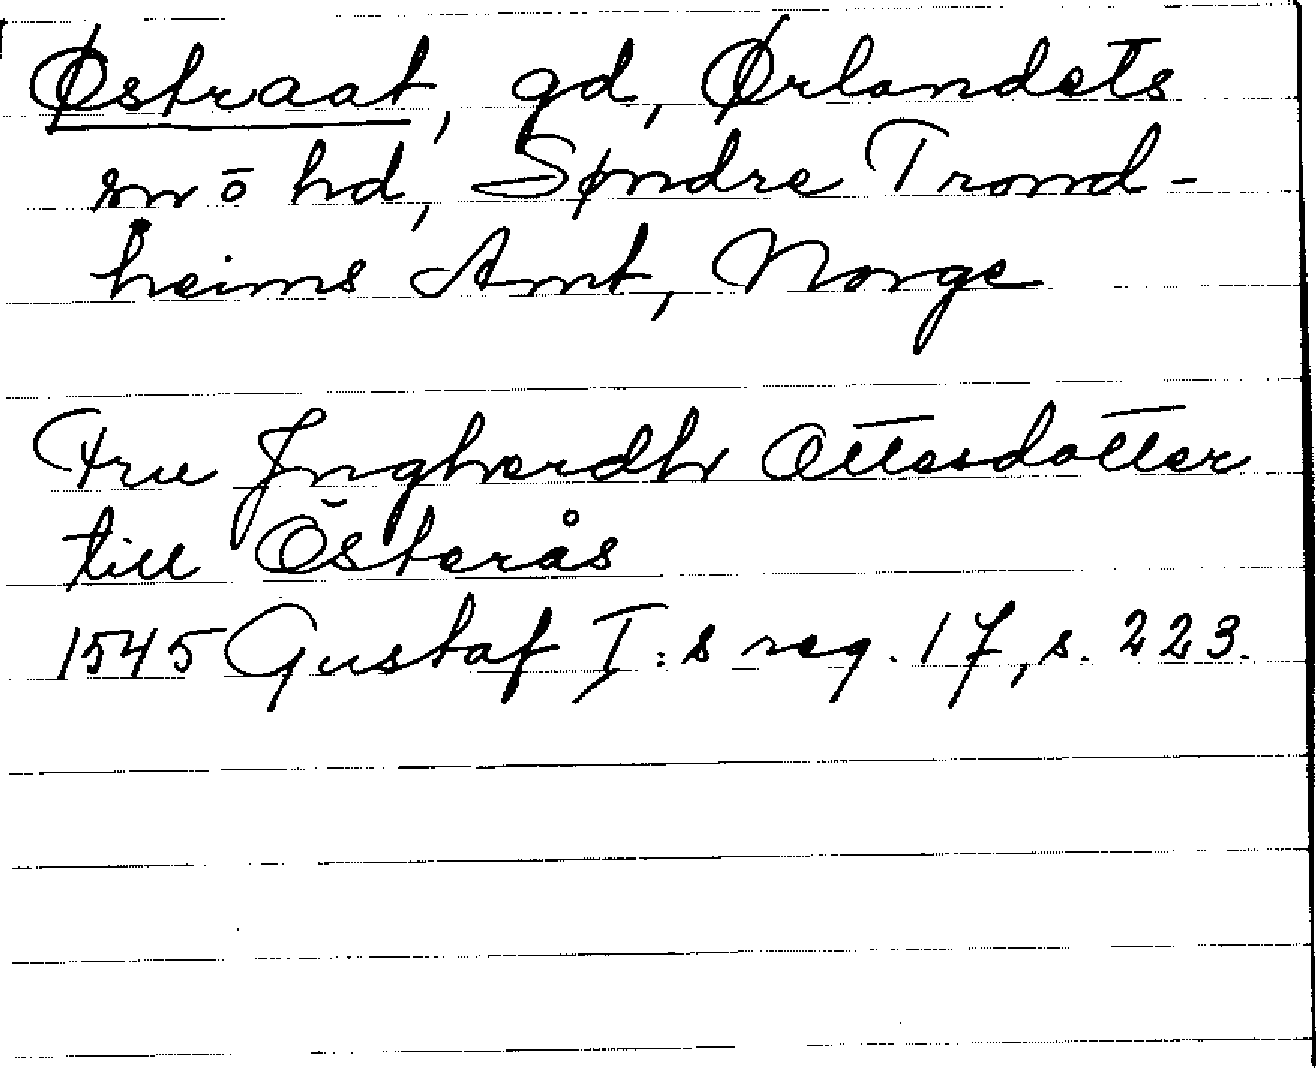 Østraat, gd, Ørlandets
sn o hd, Søndre Trond-
heims Amt, Norge
Fru Jngherdh Ottesdotter
till Österås
1545 Gustaf I:s reg. 17, s. 223.